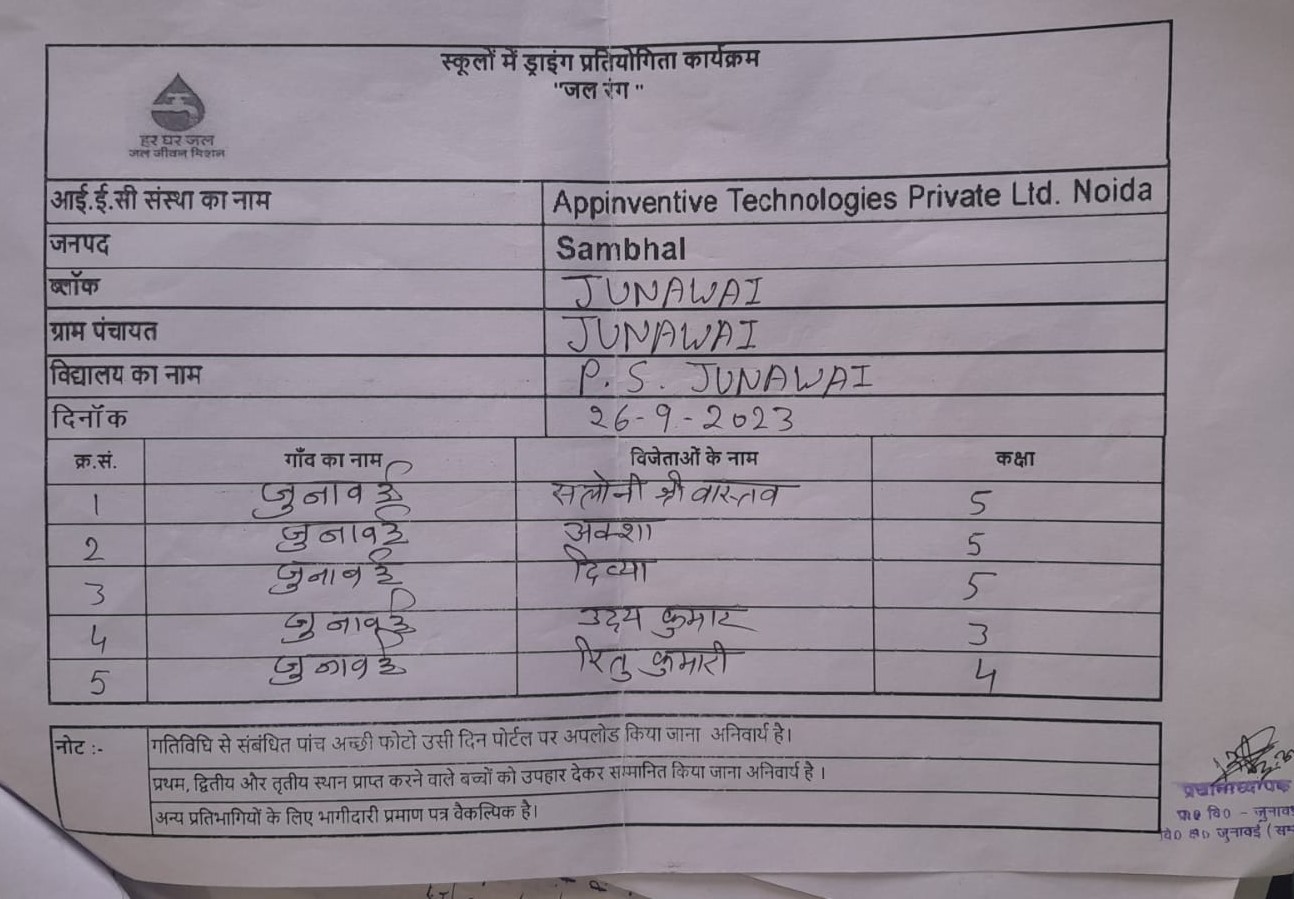 स्कूलों में ड्राइंग प्रतियोगिता कार्यक्रम
"जल रंग "
हर घर जल
जल जीवन मिशन
आई.ई.सी संस्था का नाम Appinventive Technologies Private Ltd. Noida
जनपद Sambhal
ब्लॉक JUNAWAI
ग्राम पंचायत JUNAWAI
विद्यालय का नाम P. S. JUNAWAI
दिनॉक 26-9-2023
क्र.सं. गाँव का नाम विजेताओं के नाम कक्षा
1 जुनावई सलोनी श्रीवास्तव 5
2 जुनावई अक्शा 5
3 जुनावई दिव्या 5
4 जुनावई उदय कुमार 3
5 जुनावई रितु कुमारी 4
नोट :- गतिविधि से संबंधित पांच अच्छी फोटो उसी दिन पोर्टल पर अपलोड किया जाना अनिवार्य है।
प्रथम, द्वितीय और तृतीय स्थान प्राप्त करने वाले बच्चों को उपहार देकर सम्मानित किया जाना अनिवार्य है ।
अन्य प्रतिभागियों के लिए भागीदारी प्रमाण पत्र वैकल्पिक है।
प्रधानाध्यापक
प्रा० वि० - जुनावई
वि० ख० जुनावई (सम